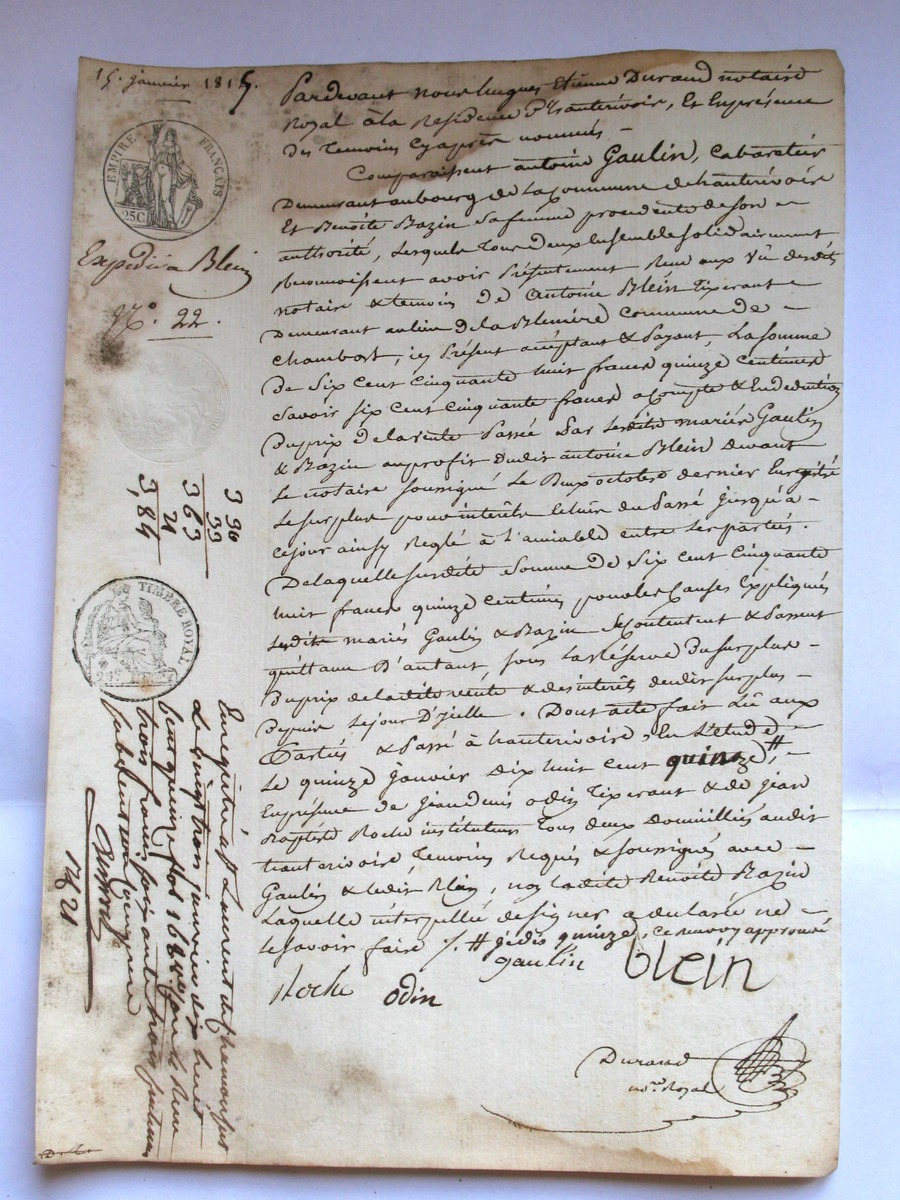 15. janvier 1815.
EMPIRE FRANÇAIS
25C
Expédié a Blein
N.° 22.
3 30
33
3 63
21
3,84
TIMBRE ROYAL
Enregistré à St Laurent de Chamousset
le vingt trois janvier dix huit
cent quinze, fol 168 Reçu
trois francs soixante trois centimes
subvention comprise
1821
Pardevant nous hugues Etienne Durand notaire
Royal à la Résidence d'hauterivoire, Et En présence
des temoins cy après nommés –
Comparaissent antoine Gaulin, Cabaretier
Demeurant au bourg de la Commune de hauterivoire
Et Benoite Bazin sa femme procedente de son –
authorité, Lesquels tous deux Ensemble solidairement
Reconnoissent avoir Présentement Reçu aux Vû desdits
notaire & temoins de Antoine Blein tixerant –
Demeurant au lieu de la Blenière Commune de –
Chambost, icy Présent acceptant & Payant, La somme
De Six Cent Cinquante huit francs quinze Centimes
Savoir six Cent Cinquante francs a Compte & En deduction
Du prix de la vente Passée Par lesdits mariés Gaulin
& Bazin au profit dudit antoine Blein devant
Le notaire soussigné Le Deux octobre dernier Enregistré
Le surplus pour interêts Echus du Passé jusqu'à –
ce jour ainsy Reglé à l'amiable entre les parties.
De laquelle susdite somme de Six Cent Cinquante
huit francs quinze Centimes pour les Causes Expliquées
Lesdits mariés Gaulin & Bazin se Contentent & Passent
quittance D'autant, sous la Réserve du surplus –
Du prix de ladite vente & des interêts dudit surplus –
Depuis ce jour D'huy. Dont acte fait Lû aux
Parties & Passé à hauterivoire, En L'etude, –
Le quinze Janvier Dix huit Cent quinze, #
En présence de Jean denis odin tixerant & de Jean
Baptiste Roche instituteur tous deux Domiciliés audit
hauterivoire temoins Requis & soussignés avec –
Gaulin & ledit Blein, non ladite Benoite Bazin
Laquelle interpellée de signer a declaré ne –
le savoir faire /. # je dis quinze, ce renvoy approuvé
gaulin blein
Roche odin
Durand
no.re Royal